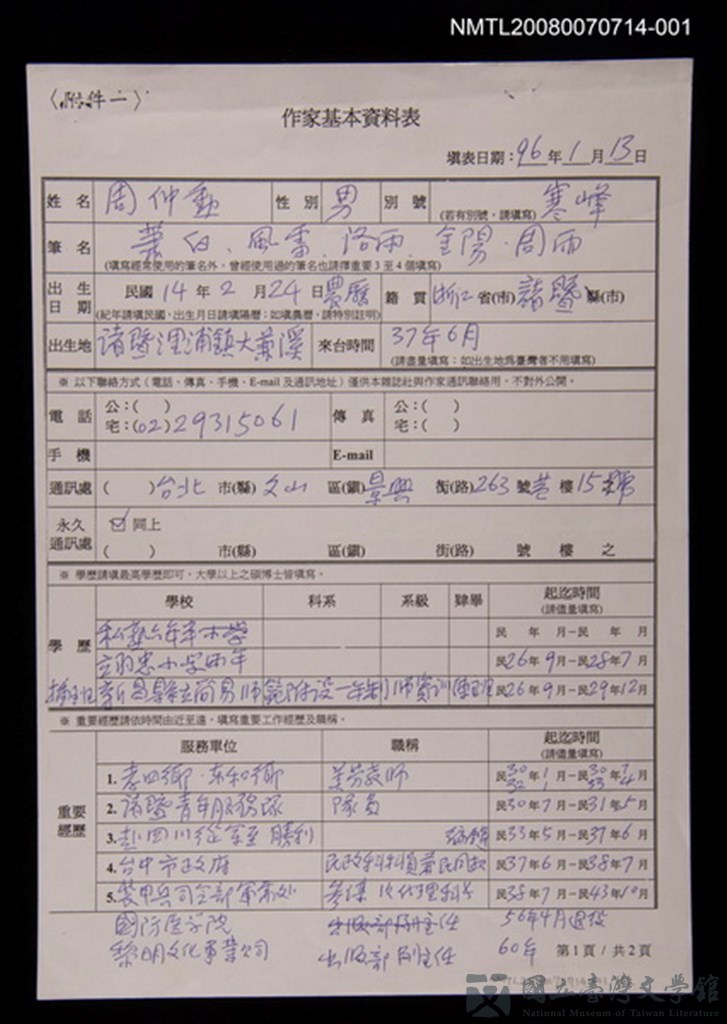 NMTL20080070714-001
〈附件一〉
作家基本資料表
填表日期：96年1月13日
姓名 周仲勳 性別 男 別號 (若有別號，請填寫) 寒峰
筆名 蕭白、風雷、洛雨、金陽、周雨
(填寫經常使用的筆名外，曾經使用過的筆名也請擇重要3至4個填寫)
出生日期 民國14年2月24日農曆 籍貫 浙江省(市)諸暨縣(市)
(紀年請填民國，出生月日請填陽曆；如填農曆，請特別註明)
出生地 諸暨浬浦鎮大黃溪 來台時間 37年6月
(請盡量填寫；如出生地為臺灣者不用填寫)
※ 以下聯絡方式（電話、傳真、手機、E-mail及通訊地址）僅供本雜誌社與作家通訊聯絡用，不對外公開。
電話 公：( ) 傳真 公：( )
宅：(02)29315061 宅：( )
手機 E-mail
通訊處 ( )台北市(縣)文山區(鎮)景興街(路)263號巷樓15號
永久通訊處 ☑同上
( ) 市(縣) 區(鎮) 街(路) 號 樓 之
※ 學歷請填最高學歷即可，大學以上之碩博士皆填寫。
學歷 學校 科系 系級 肄畢 起迄時間
(請儘量填寫)
私塾六年半小學 民 年 月－民 年 月
小学两年 民26年9月－民28年7月
新昌縣立简易师範附设一年制师资训 民26年9月－民29年12月
※ 重要經歷請依時間由近至遠，填寫重要工作經歷及職稱。
重要經歷 服務單位 職稱 起迄時間
(請儘量填寫)
1. 孝四鄉．東和鄉 教师 民30年1月－民30年
2. 諸暨青年服務隊 隊員 民30年7月－民31年5月
3. 赴四川從軍至勝利 民33年5月－民37年6月
4. 台中市政府 民政科科員 民37年6月－民38年7月
5. 裝甲兵司令部軍 民38年7月－民43年10月
国防医学院 56年4月退役
黎明文化事業公司 出版部副主任 60年 第1頁／共2頁
國立臺灣文學館
National Museum of Taiwan Literature